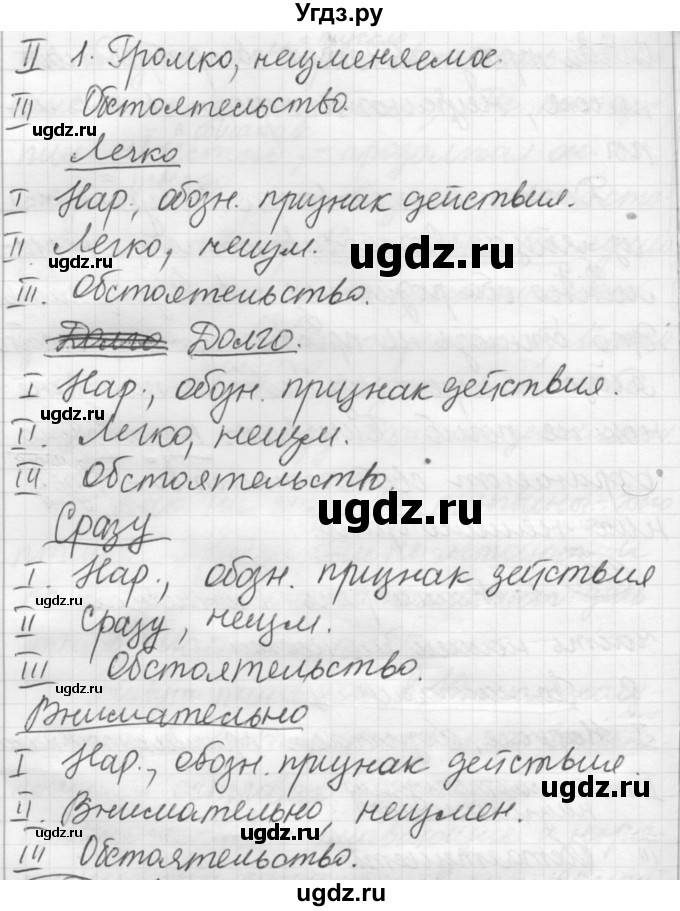 Угдз.ру
II 1. Громко, неизменяемое.
III Обстоятельство.
ugdz.ru
Легко
I Нар., обозн. признак действия.
II. Легко, неизм.
ugdz.ru
ugdz.ru
III. Обстоятельство.
Долго Долго.
I Нар., обозн. признак действия.
ugdz.ru
II. Легко, неизм.
III. Обстоятельство.
ugdz.ru
Сразу
I. Нар., обозн. признак действия
ugdz.ru
II Сразу, неизм.
III Обстоятельство.
ugdz.ru
Внимательно
I Нар., обозн. признак действия.
ugdz.ru
II. Внимательно, неизмен.
ugdz.ru
ugdz.ru
III Обстоятельство.
ugdz.ru